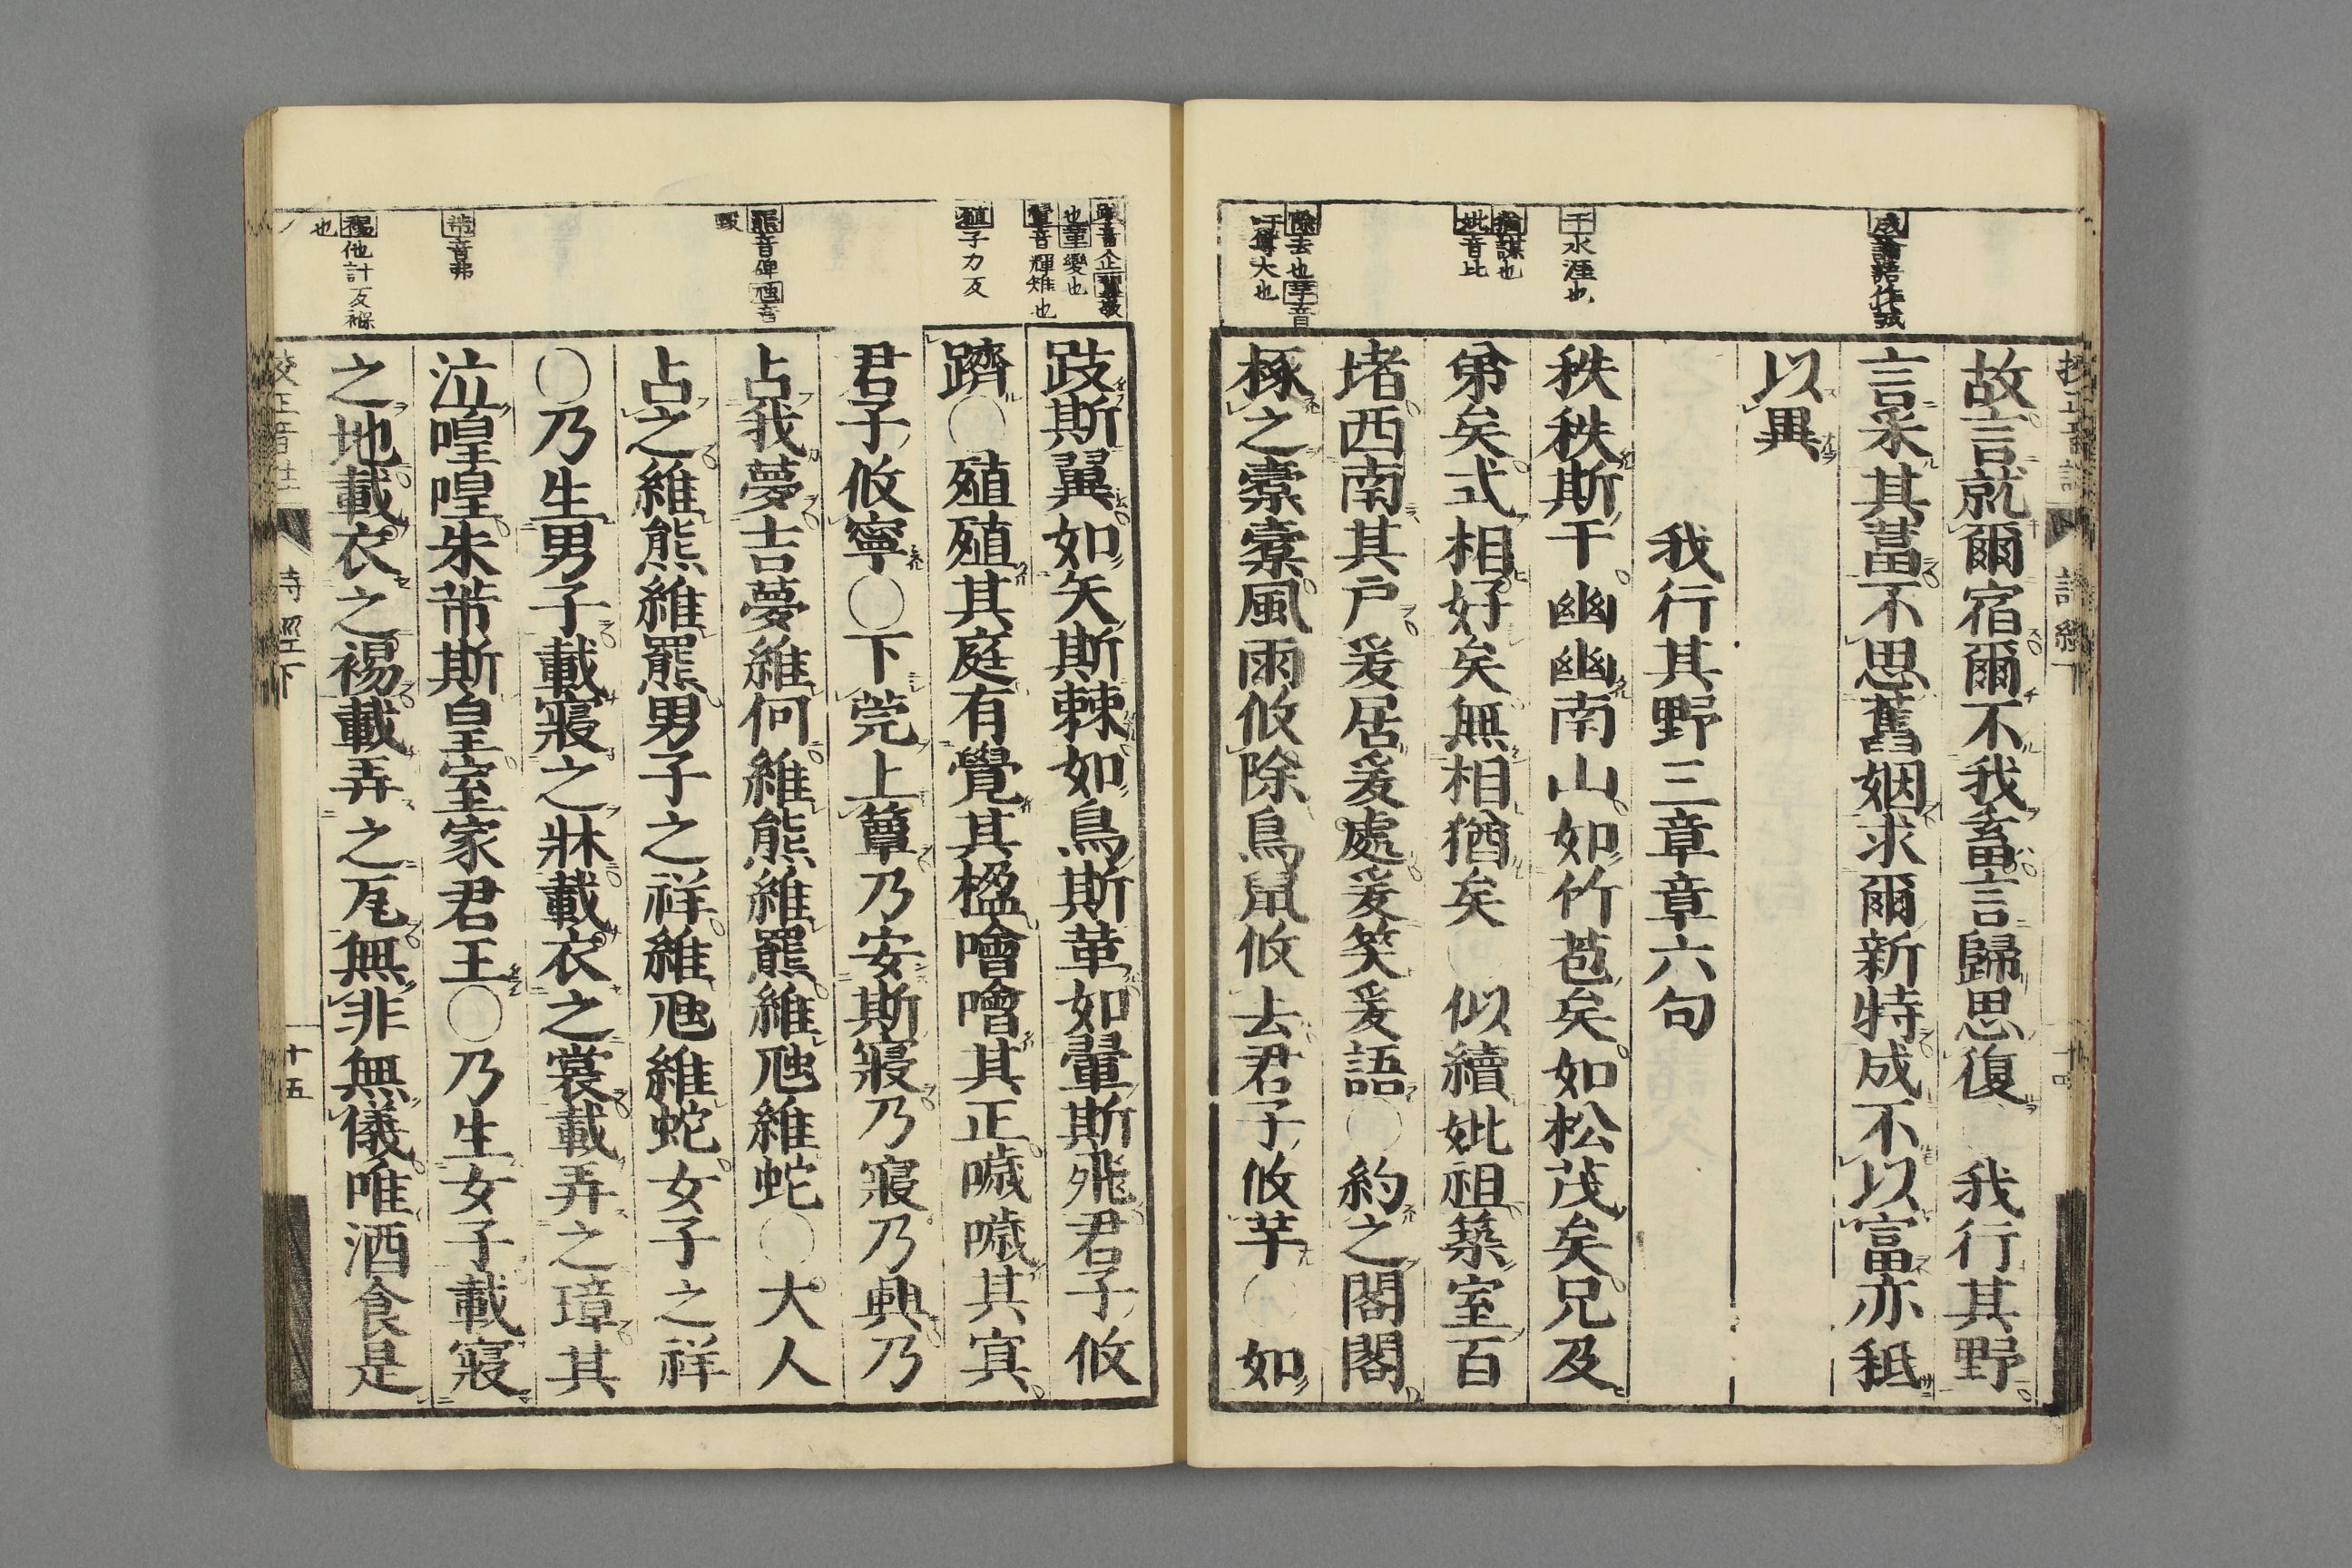 故言就爾宿爾不我畜言歸思復 我行其野
言采其葍不思舊姻求爾新特成不以富亦秖
以異
我行其野三章章六句
秩秩斯干幽幽南山如竹苞矣如松茂矣兄及
弟矣式相好矣無相猶矣〇似續妣祖築室百
堵西南其戶爰居爰處爰笑爰語〇約之閣閣
椓之橐橐風雨攸除鳥鼠攸去君子攸芋〇如
跂斯翼如矢斯棘如鳥斯革如翬斯飛君子攸
躋〇殖殖其庭有覺其楹噲噲其正噦噦其冥
君子攸寧〇下莞上簟乃安斯寢乃寢乃興乃
占我夢吉夢維何維熊維羆維虺維蛇〇大人
占之維熊維羆男子之祥維虺維蛇女子之祥
〇乃生男子載寢之牀載衣之裳載弄之璋其
泣喤喤朱芾斯皇室家君王〇乃生女子載寢
之地載衣之裼載弄之瓦無非無儀唯酒食是
干水涯也
猶謀也
妣音比
除去也芋音
吁尊大也
也革變也
翬音輝雉也
殖子力反
羆音碑虺音
芾音弗
裼他計反褓
也
詩經下
十四
校正音註
詩經下
十五